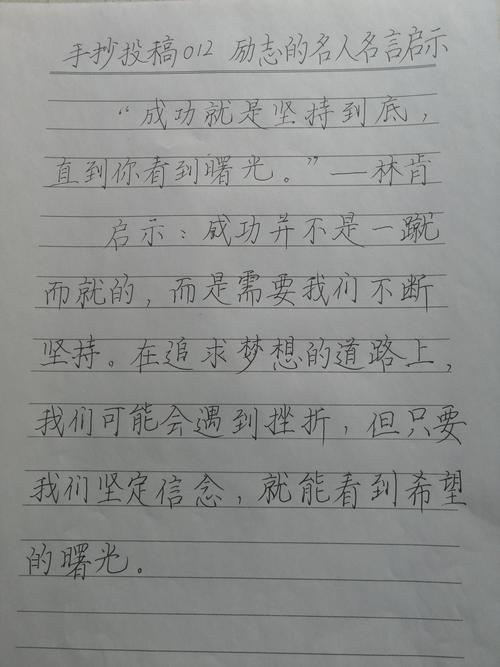 手抄投稿012 励志的名人名言启示
“成功就是坚持到底，
直到你看到曙光。”—林肯
启示：成功并不是一蹴
而就的，而是需要我们不断
坚持。在追求梦想的道路上，
我们可能会遇到挫折，但只要
我们坚定信念，就能看到希望
的曙光。